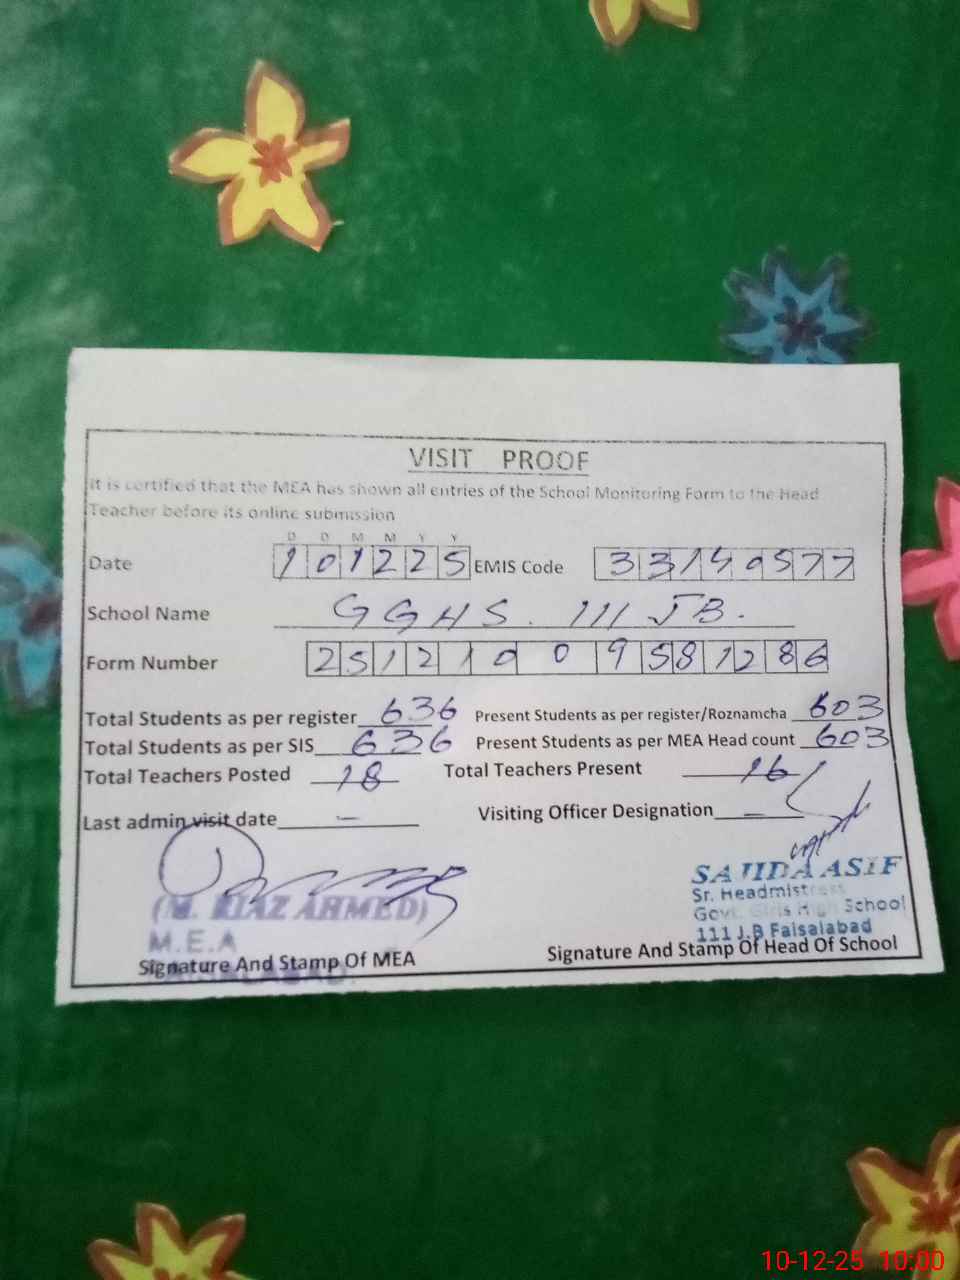 VISIT PROOF
It is certified that the MEA has shown all entries of the School Monitoring Form to the Head
Teacher before its online submission
D D M M Y Y
Date 101225 EMIS Code 33140577
School Name GGHS. 111 JB.
Form Number 2512100958 1286
Total Students as per register 636 Present Students as per register/Roznamcha 603
Total Students as per SIS 636 Present Students as per MEA Head count 603
Total Teachers Posted 18 Total Teachers Present 16
Last admin visit date — Visiting Officer Designation —
SAJIDA ASIF
Sr. Headmistress
Govt. Girls High School
111 J.B Faisalabad
(M. RIAZ AHMED)
M.E.A
Signature And Stamp Of MEA Signature And Stamp Of Head Of School
10-12-25 10:00